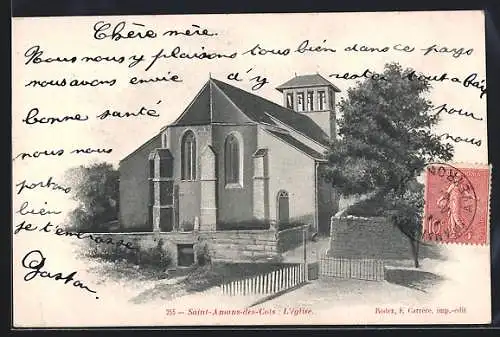 Chère mère.
Nous nous y plaisons tous bien dans ce pays
nous avons envie d'y rester tout à fait
bonne santé pour
nous nous
portons
bien
je t'em
Gaston
AVEYRON
255 — Saint-Amans-des-Cots : L'église.
Rodez, E. Carrère, imp.-édit